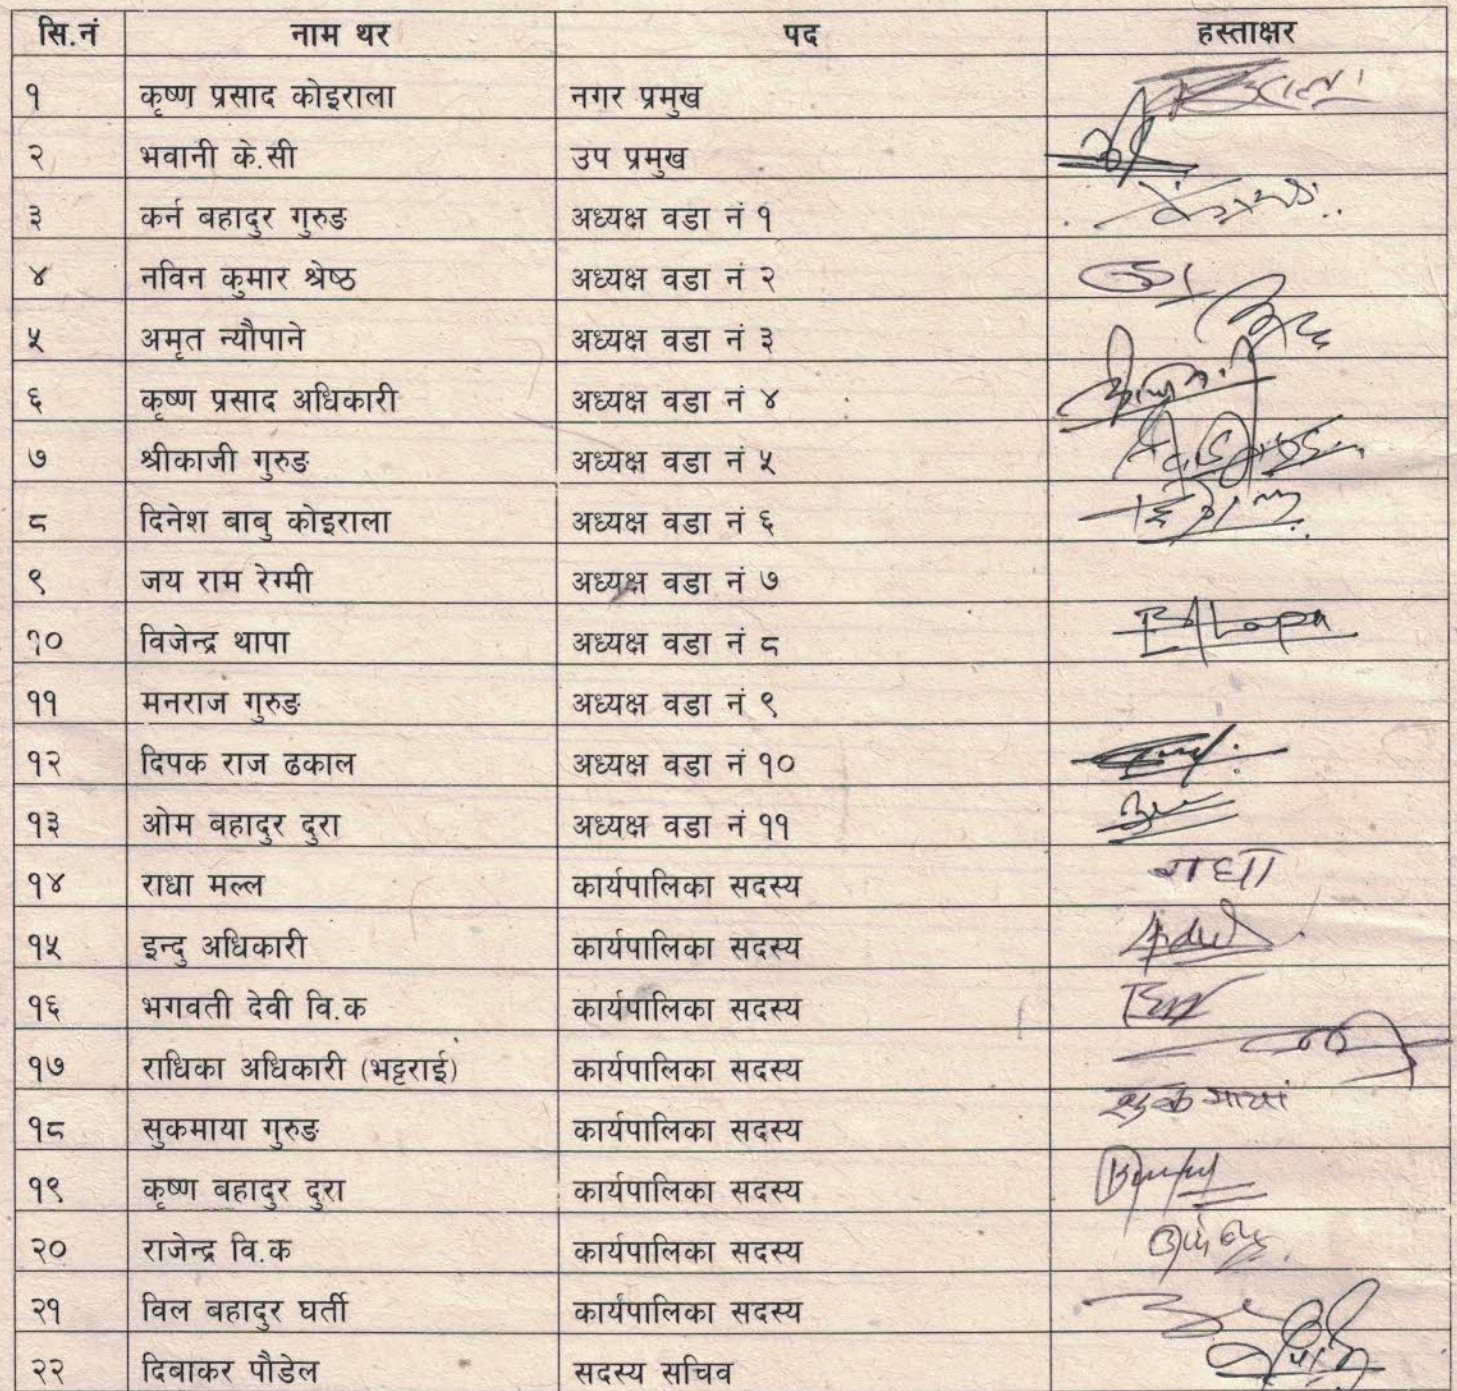 सि.नं नाम थर पद हस्ताक्षर
१ कृष्ण प्रसाद कोइराला नगर प्रमुख
२ भवानी के.सी उप प्रमुख
३ कर्न बहादुर गुरुङ अध्यक्ष वडा नं १
४ नविन कुमार श्रेष्ठ अध्यक्ष वडा नं २
५ अमृत न्यौपाने अध्यक्ष वडा नं ३
६ कृष्ण प्रसाद अधिकारी अध्यक्ष वडा नं ४
७ श्रीकाजी गुरुङ अध्यक्ष वडा नं ५
८ दिनेश बाबु कोइराला अध्यक्ष वडा नं ६
९ जय राम रेग्मी अध्यक्ष वडा नं ७
१० विजेन्द्र थापा अध्यक्ष वडा नं ८
११ मनराज गुरुङ अध्यक्ष वडा नं ९
१२ दिपक राज ढकाल अध्यक्ष वडा नं १०
१३ ओम बहादुर दुरा अध्यक्ष वडा नं ११
१४ राधा मल्ल कार्यपालिका सदस्य राधा
१५ इन्दु अधिकारी कार्यपालिका सदस्य
१६ भगवती देवी वि.क कार्यपालिका सदस्य
१७ राधिका अधिकारी (भट्टराई) कार्यपालिका सदस्य
१८ सुकमाया गुरुङ कार्यपालिका सदस्य सुकमाया
१९ कृष्ण बहादुर दुरा कार्यपालिका सदस्य
२० राजेन्द्र वि.क कार्यपालिका सदस्य
२१ विल बहादुर घर्ती कार्यपालिका सदस्य
२२ दिबाकर पौडेल सदस्य सचिव